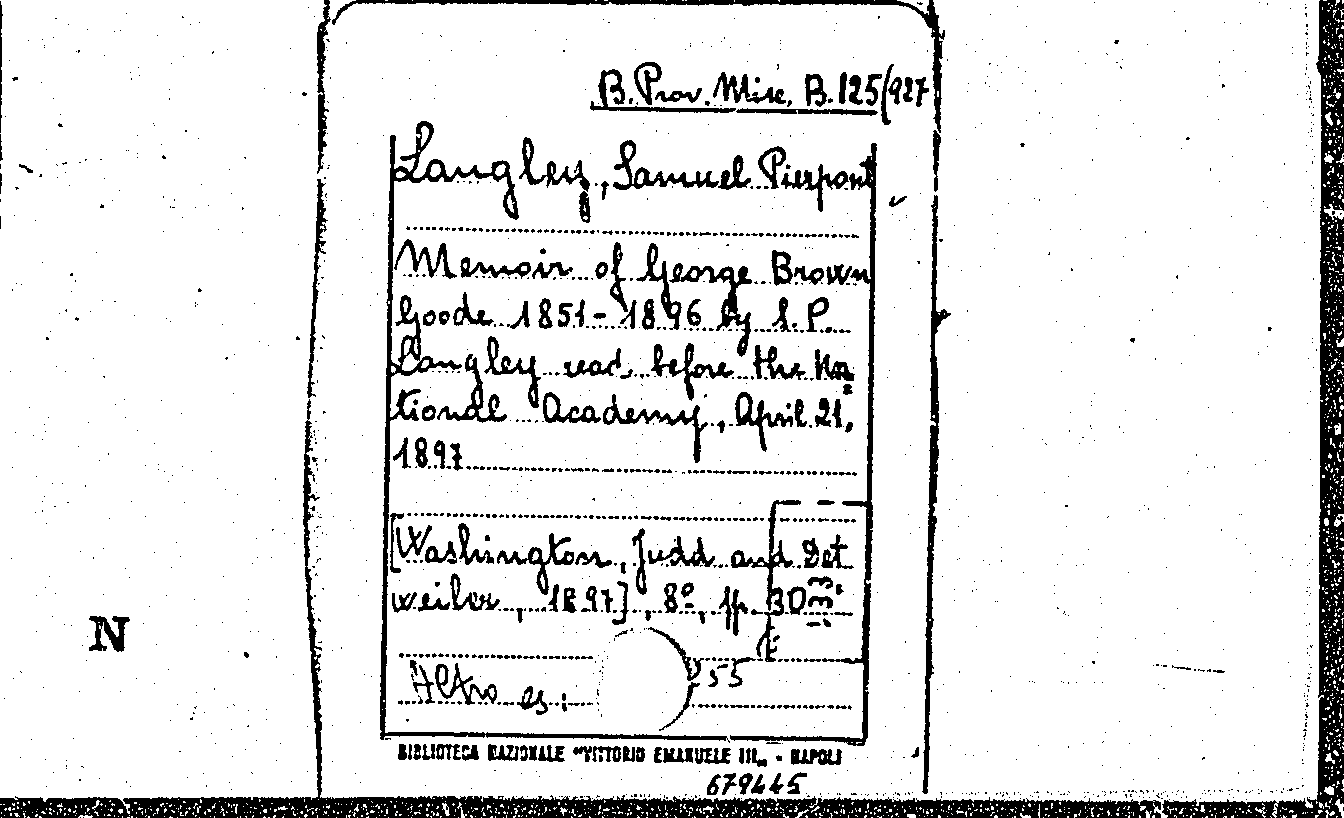 B. Prov. Misc. B. 125(927
Langley, Samuel Pierpont
Memoir of George Brown
Goode 1851-1896 by S. P.
Langley read before the Na=
tional Academy, April 21,
1897
[Washington, Judd and Det
weiler, 1897], 8º, pp. 30
N
Altro es: 255
BIBLIOTECA NAZIONALE "VITTORIO EMANUELE III„ - NAPOLI
679445